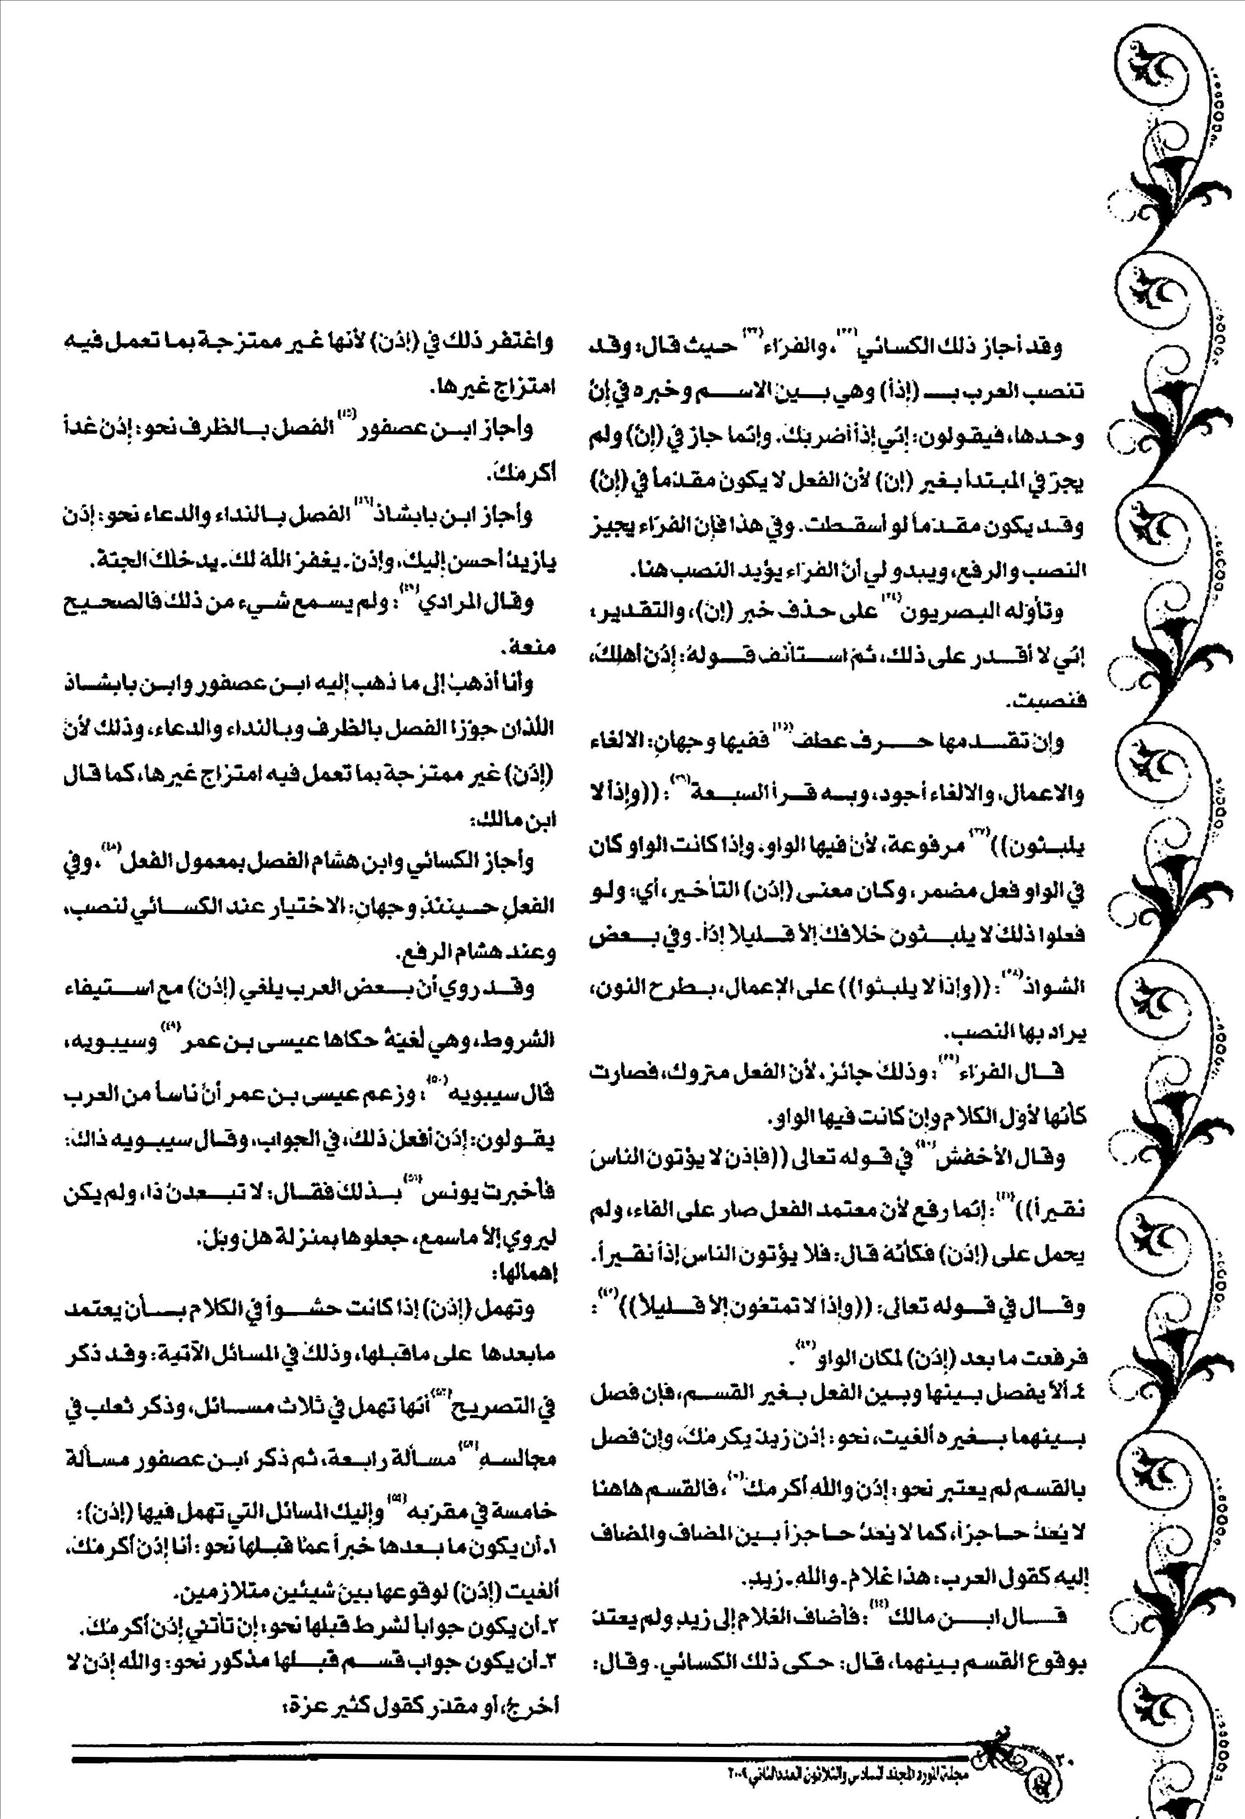 وقد أجاز ذلك الكسائي(٣٢)، والفراء(٣٣) حيث قال: وقد
تنصب العرب بـ (إذاً) وهي بين الاسم وخبره في إنّ
وحدها، فيقولون: إنّي إذاً أضربك. وإنّما جاز في (إنّ) ولم
يجز في المبتدأ بغير (إنّ) لأن الفعل لا يكون مقدماً في (إنّ)
وقد يكون مقدماً لو أسقطت. وفي هذا فإن الفراء يجيز
النصب والرفع، ويبدو لي أنّ الفراء يؤيد النصب هنا.
وتأوّله البصريون(٣٤) على حذف خبر (إنّ)، والتقدير:
إنّي لا أقدر على ذلك، ثم استأنف قوله: إذن أهلك،
فنصبت.
وإن تقدمها حرف عطف(٣٥) ففيها وجهان: الالغاء
والاعمال، والالغاء أجود، وبه قرأ السبعة(٣٦): ((وإذاً لا
يلبثون))(٣٧) مرفوعة، لأن فيها الواو. وإذا كانت الواو كان
في الواو فعل مضمر، وكان معنى (إذن) التأخير، أي: ولو
فعلوا ذلك لا يلبثون خلافك إلا قليلا إذاً. وفي بعض
الشواذ(٣٨): ((وإذاً لا يلبثوا)) على الإعمال، بطرح النون،
يراد بها النصب.
قال الفراء(٣٩): وذلك جائز. لأن الفعل متروك، فصارت
كأنها لأول الكلام وإن كانت فيها الواو.
وقال الأخفش(٤٠) في قوله تعالى ((فإذن لا يؤتون الناس
نقيراً))(٤١): إنّما رفع لأن معتمد الفعل صار على الفاء، ولم
يحمل على (إذن) فكأنه قال: فلا يؤتون الناس إذاً نقيراً.
وقال في قوله تعالى: ((وإذاً لا تمتعون إلا قليلاً))(٤٢):
فرفعت ما بعد (إذن) لمكان الواو(٤٣).
٤ـ ألاّ يفصل بينها وبين الفعل بغير القسم، فإن فصل
بينهما بغيره ألغيت، نحو: إذن زيد يكرمك، وإن فصل
بالقسم لم يعتبر نحو: إذن والله أكرمك، فالقسم هاهنا
لا يُعدّ حاجزاً، كما لا يُعدّ حاجزاً بين المضاف والمضاف
إليه كقول العرب: هذا غلام ـ والله ـ زيد.
قال ابن مالك(٤٤): فأضاف الغلام إلى زيد ولم يعتد
بوقوع القسم بينهما، قال: حكى ذلك الكسائي. وقال:
واغتفر ذلك في (إذن) لأنها غير ممتزجة بما تعمل فيه
امتزاج غيرها.
وأجاز ابن عصفور(٤٥) الفصل بالظرف نحو: إذن غداً
أكرمك.
وأجاز ابن بابشاذ(٤٦) الفصل بالنداء والدعاء نحو: إذن
يازيد أحسن إليك، وإذن ـ يغفر الله لك ـ يدخلك الجنة.
وقال المرادي(٤٧): ولم يسمع شيء من ذلك فالصحيح
منعه.
وأنا أذهب إلى ما ذهب إليه ابن عصفور وابن بابشاذ
اللذان جوّزا الفصل بالظرف وبالنداء والدعاء، وذلك لأن
(إذن) غير ممتزجة بما تعمل فيه امتزاج غيرها، كما قال
ابن مالك:
وأجاز الكسائي وابن هشام الفصل بمعمول الفعل(٤٨)، وفي
الفعل حينئذٍ وجهان: الاختيار عند الكسائي لنصب،
وعند هشام الرفع.
وقد روي أن بعض العرب يلغي (إذن) مع استيفاء
الشروط، وهي لُغيّة حكاها عيسى بن عمر(٤٩) وسيبويه،
قال سيبويه(٥٠): وزعم عيسى بن عمر أنّ ناساً من العرب
يقولون: إذن أفعل ذلك، في الجواب، وقال سيبويه ذاك:
فأخبرت يونس(٥١) بذلك فقال: لا تبعدن ذا، ولم يكن
ليروي إلا ماسمع، جعلوها بمنزلة هل وبل.
إهمالها:
وتهمل (إذن) إذا كانت حشواً في الكلام بأن يعتمد
مابعدها على ماقبلها، وذلك في المسائل الآتية: وقد ذكر
في التصريح(٥٢) أنها تهمل في ثلاث مسائل، وذكر ثعلب في
مجالسه(٥٣) مسألة رابعة، ثم ذكر ابن عصفور مسألة
خامسة في مقربه(٥٤) وإليك المسائل التي تهمل فيها (إذن):
١ـ أن يكون ما بعدها خبراً عمّا قبلها نحو: أنا إذن أكرمك،
ألغيت (إذن) لوقوعها بين شيئين متلازمين.
٢ـ أن يكون جواباً لشرط قبلها نحو: إن تأتني إذن أكرمك.
٣ـ أن يكون جواب قسم قبلها مذكور نحو: والله إذن لا
أخرج، أو مقدر كقول كثير عزة:
٣٠
مجلة المورد المجلد السادس والثلاثون العدد الثاني ٢٠٠٩